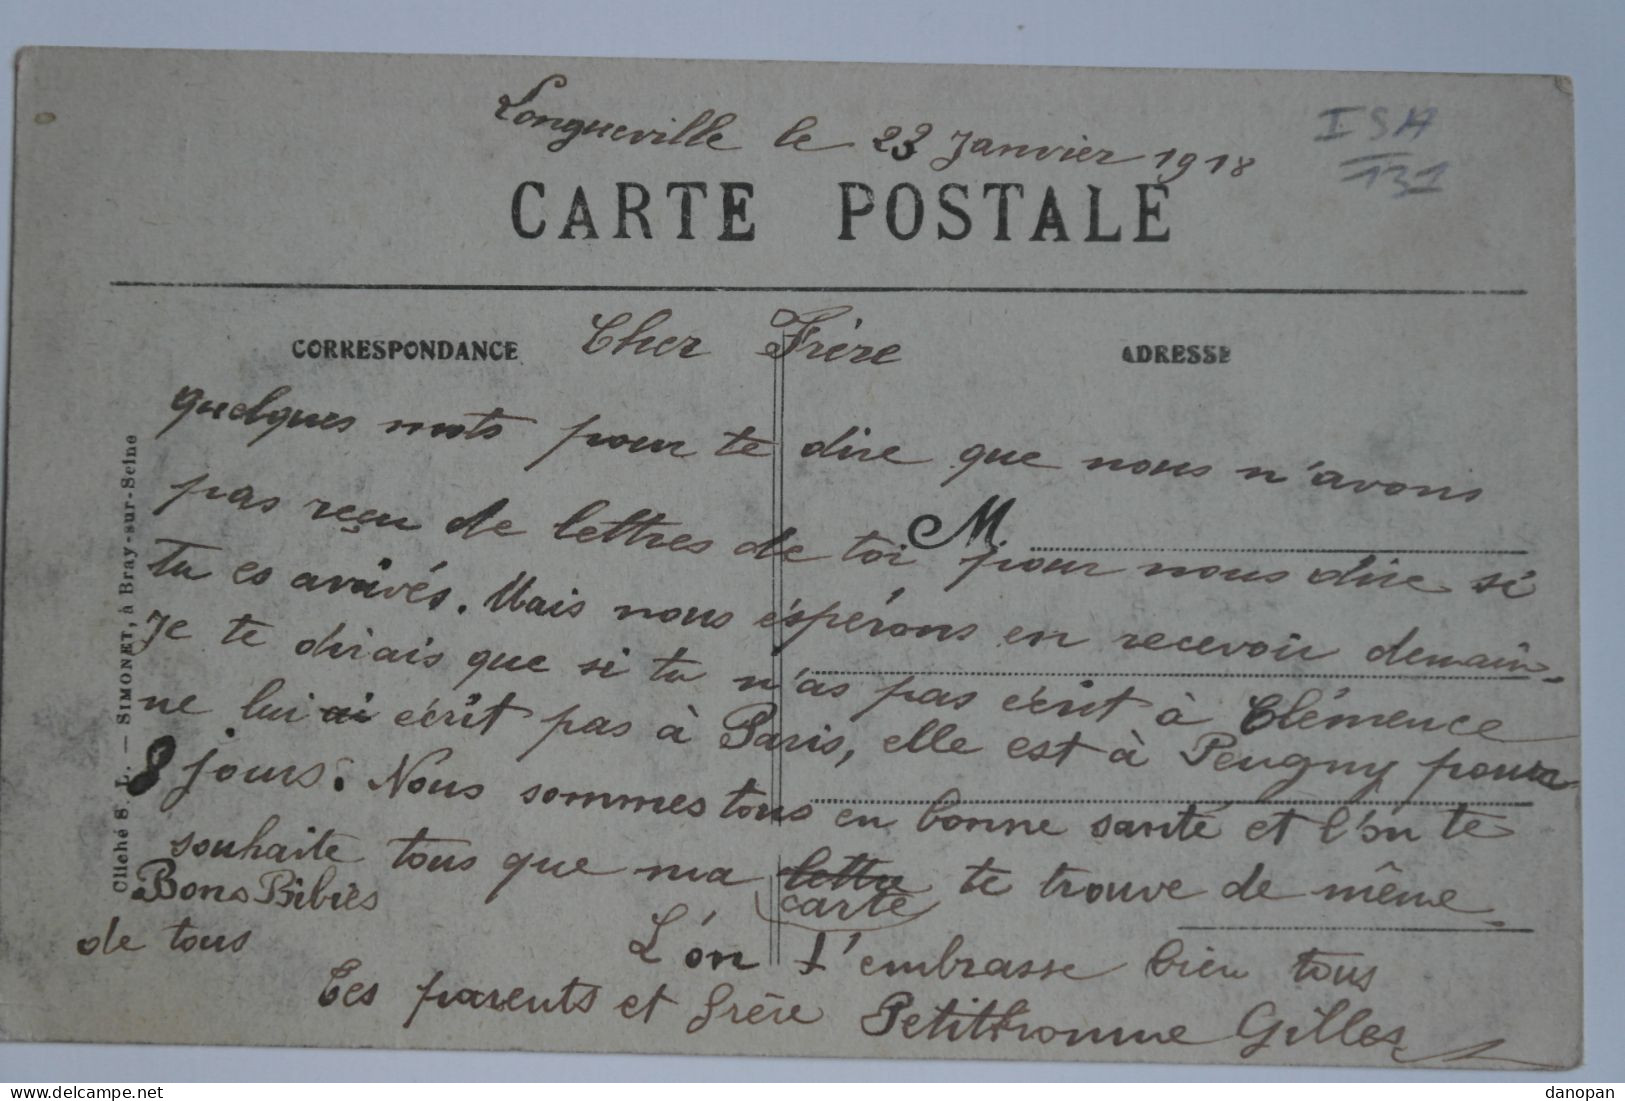 Longueville le 23 Janvier 1918
ISA
131
CARTE POSTALE
CORRESPONDANCE
Cher Frère
ADRESSE
quelques mots pour te dire que nous n'avons
pas reçu de lettres de toi pour nous dire si
M.
tu es arrivés. Mais nous éspérons en recevoir demain.
Je te dirais que si tu n'as pas écrit à Clémence
ne lui ai écrit pas à Paris, elle est à Peugny pour
8 jours. Nous sommes tous en bonne santé et l'on te
souhaite tous que ma lettre te trouve de même.
carte
Bons Bibies
de tous
L'on t'embrasse bien tous
Tes parents et frère Petithomme Gilles
Cliché S. L. — SIMONET, à Bray-sur-Seine
danopan